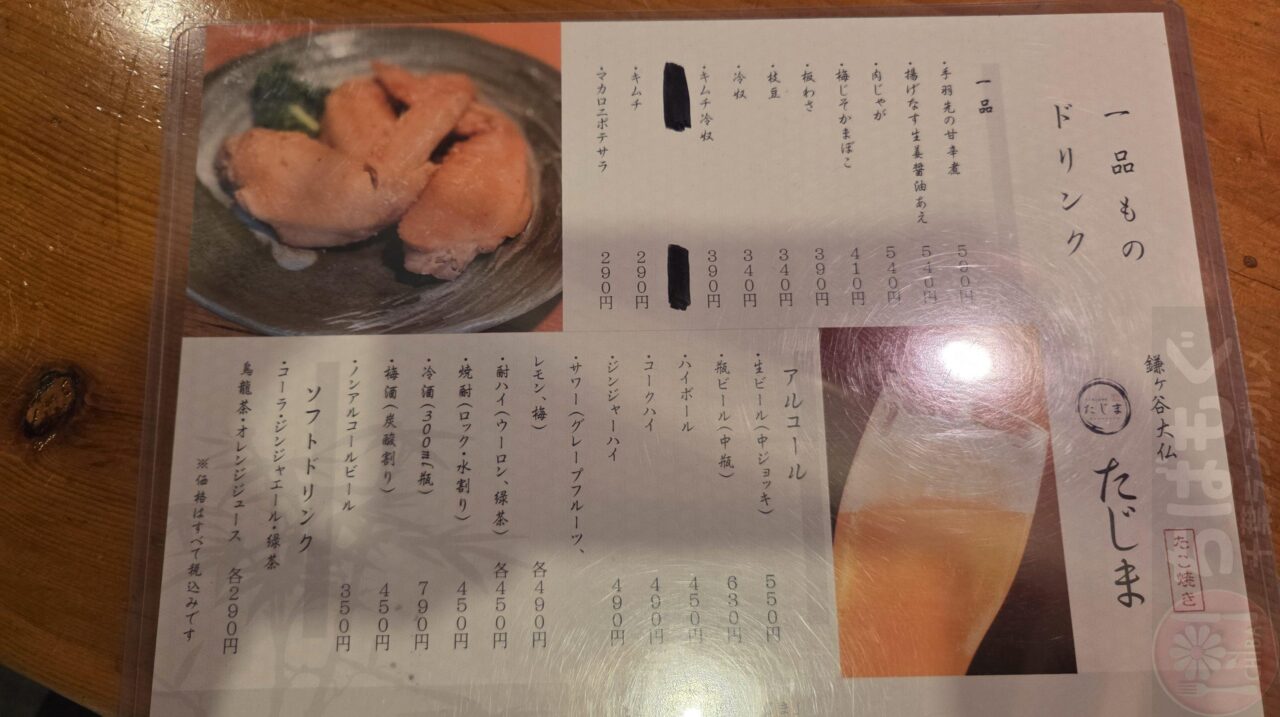 一品もの
ドリンク
鎌ヶ谷大仏
たじま
たじま
たこ焼き
一品
・手羽先の甘辛煮 590円
・揚げなす生姜醤油あえ 540円
・肉じゃが 540円
・梅じそかまぼこ 410円
・板わさ 390円
・枝豆 340円
・冷奴 340円
・キムチ冷奴 390円
・キムチ 290円
・マカロニポテサラ 290円
アルコール
・生ビール(中ジョッキ) 550円
・瓶ビール(中瓶) 630円
・ハイボール 450円
・コークハイ 490円
・ジンジャーハイ 490円
・サワー(グレープフルーツ、
レモン、梅) 各490円
・酎ハイ(ウーロン、緑茶) 各450円
・焼酎(ロック・水割り) 450円
・冷酒(300ml瓶) 790円
・梅酒(炭酸割り) 450円
・ノンアルコールビール 350円
ソフトドリンク
・コーラ・ジンジャエール・緑茶
烏龍茶・オレンジジュース 各290円
※価格はすべて税込みです